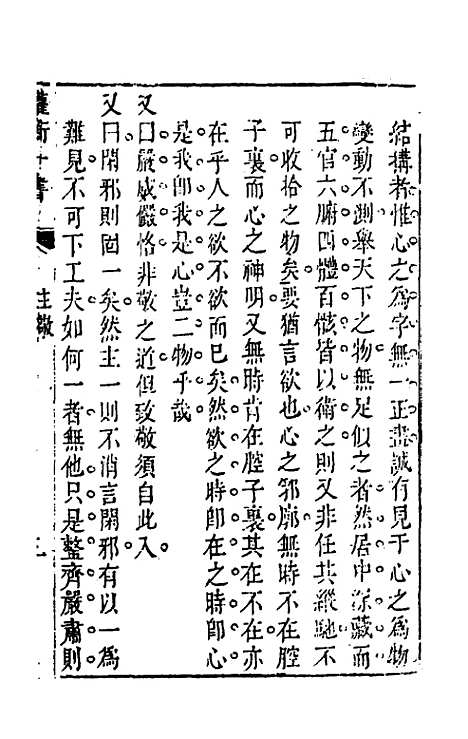 結搆者惟心之爲字無一正畫誠有見于心之爲物
變動不測舉天下之物無足似之者然居中深藏而
五官六腑四體百骸皆以衛之則又非任其縱馳不
可收拾之物矣要猶言欲也心之郛廓無時不在腔
子裏而心之神明又無時肯在腔子裏其在不在亦
在乎人之欲不欲而已矣然欲之時卽在之時卽心
是我卽我是心豈二物乎哉
又曰嚴威儼恪非敬之道但致敬須自此入
又曰閑邪則固一矣然主一則不消言閑邪有以一爲
難見不可下工夫如何一者無他只是整齊嚴肅則
主敬